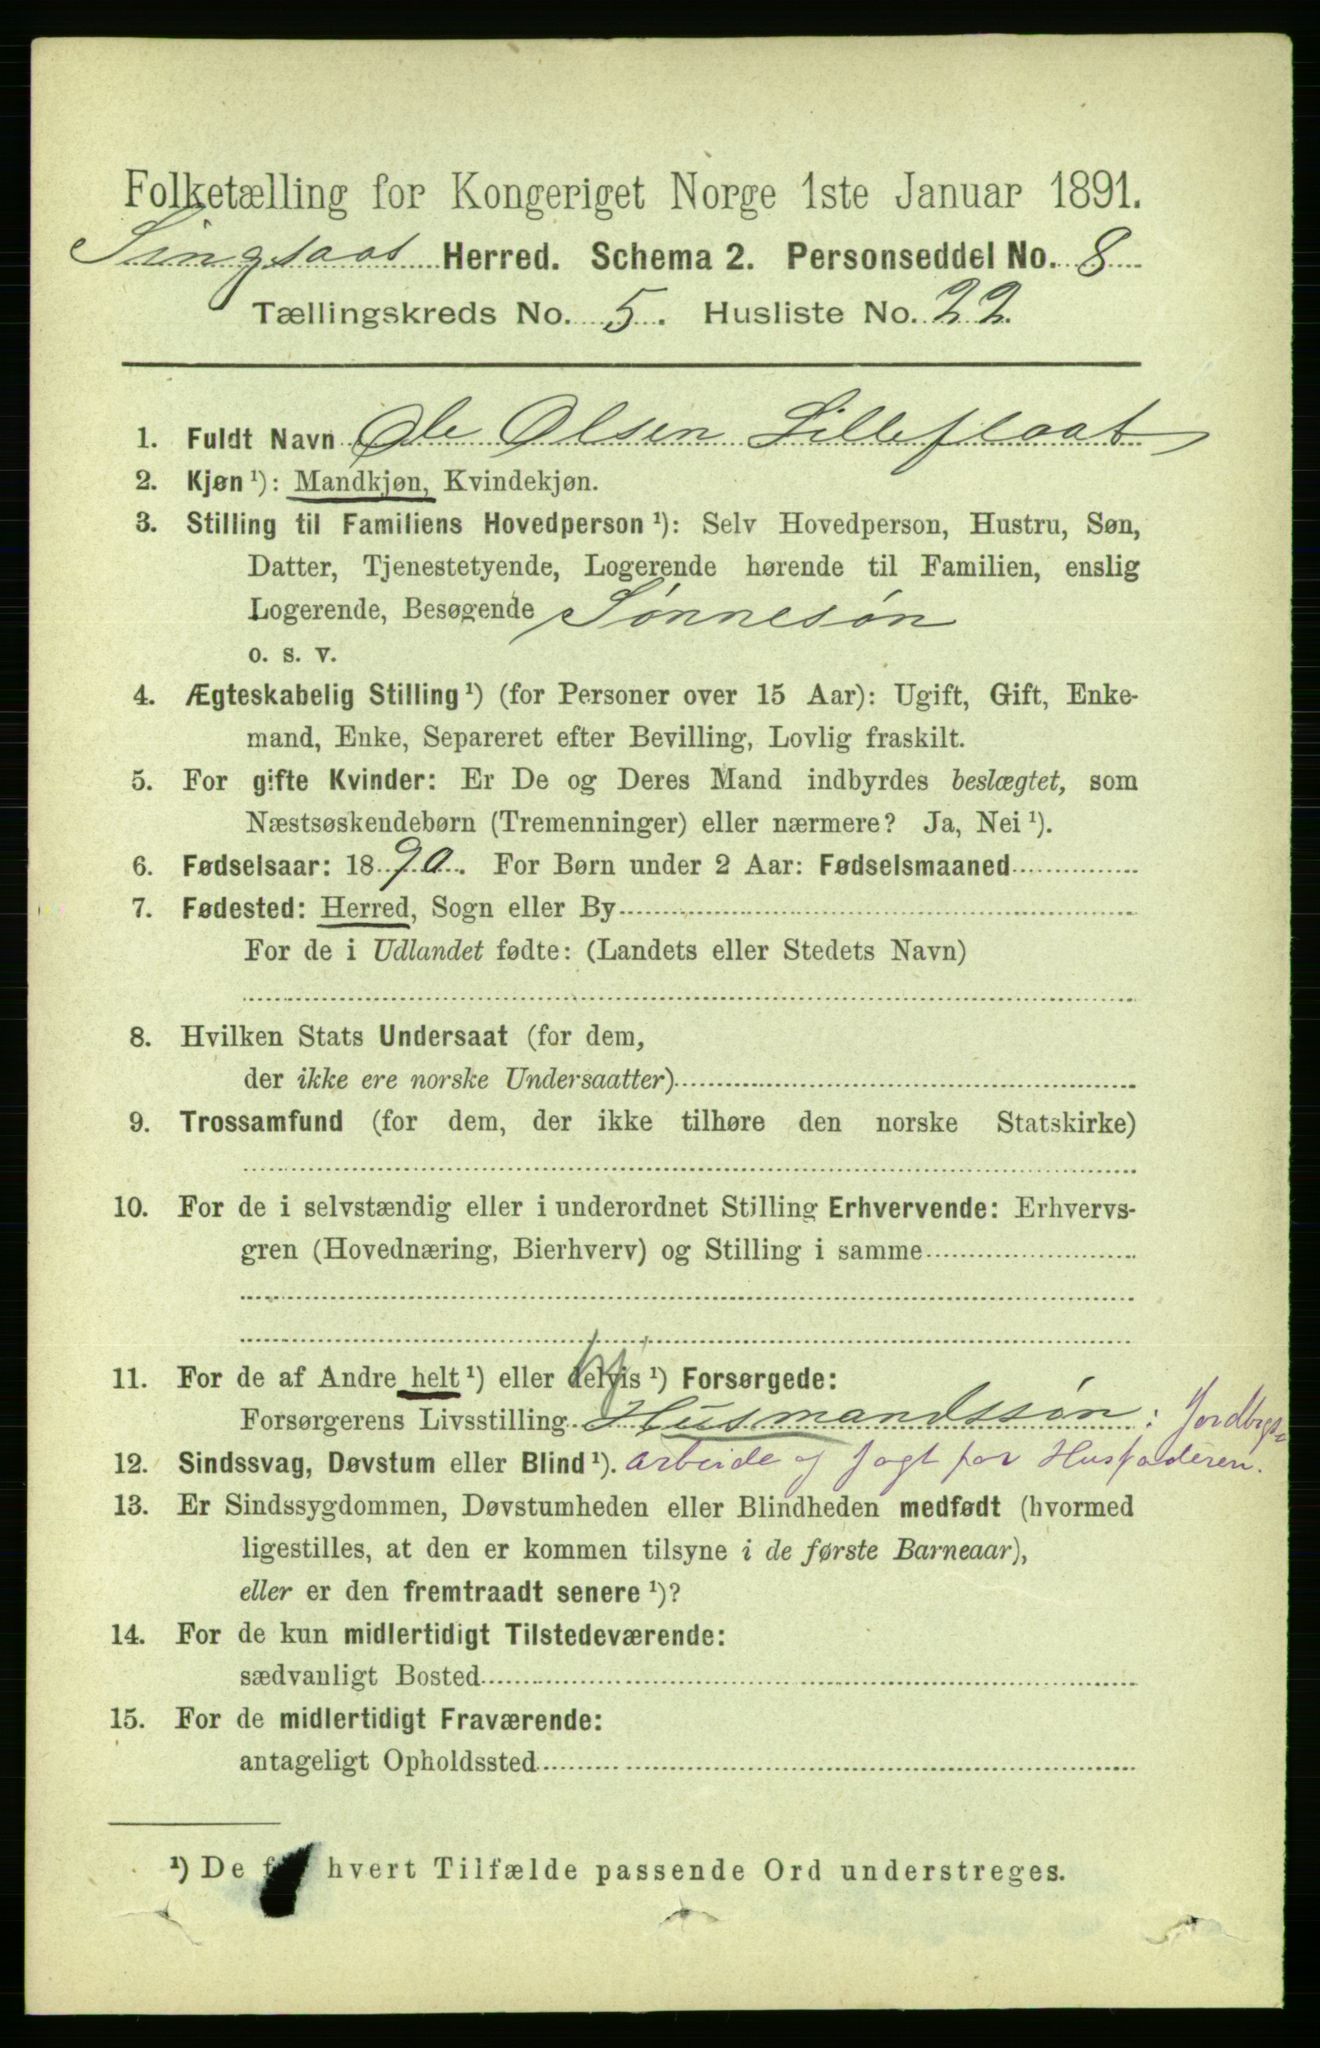 Folketælling for Kongeriget Norge 1ste Januar 1891.
Singsaas Herred. Schema 2. Personseddel No. 8
Tællingskreds No. 5. Husliste No. 22.
1. Fuldt Navn Ole Olsen Lillefloat
2. Kjøn ¹): Mandkjøn, Kvindekjøn.
3. Stilling til Familiens Hovedperson ¹): Selv Hovedperson, Hustru, Søn,
Datter, Tjenestetyende, Logerende hørende til Familien, enslig
Logerende, Besøgende Sønnesøn
o. s. v.
4. Ægteskabelig Stilling ¹) (for Personer over 15 Aar): Ugift, Gift, Enke-
mand, Enke, Separeret efter Bevilling, Lovlig fraskilt.
5. For gifte Kvinder: Er De og Deres Mand indbyrdes beslægtet, som
Næstsøskendebørn (Tremenninger) eller nærmere? Ja, Nei ¹).
6. Fødselsaar: 1890. For Børn under 2 Aar: Fødselsmaaned
7. Fødested: Herred, Sogn eller By
For de i Udlandet fødte: (Landets eller Stedets Navn)
8. Hvilken Stats Undersaat (for dem,
der ikke ere norske Undersaatter)
9. Trossamfund (for dem, der ikke tilhøre den norske Statskirke)
10. For de i selvstændig eller i underordnet Stilling Erhvervende: Erhvervs-
gren (Hovednæring, Bierhverv) og Stilling i samme
11. For de af Andre helt ¹) eller delvis ¹) Forsørgede:
Forsørgerens Livsstilling Husmandssøn: Jordbrgs=
12. Sindssvag, Døvstum eller Blind ¹). arbeide og Jagt for Husfaderen.
13. Er Sindssygdommen, Døvstumheden eller Blindheden medfødt (hvormed
ligestilles, at den er kommen tilsyne i de første Barneaar),
eller er den fremtraadt senere ¹)?
14. For de kun midlertidigt Tilstedeværende:
sædvanligt Bosted
15. For de midlertidigt Fraværende:
antageligt Opholdssted
¹) De hvert Tilfælde passende Ord understreges.